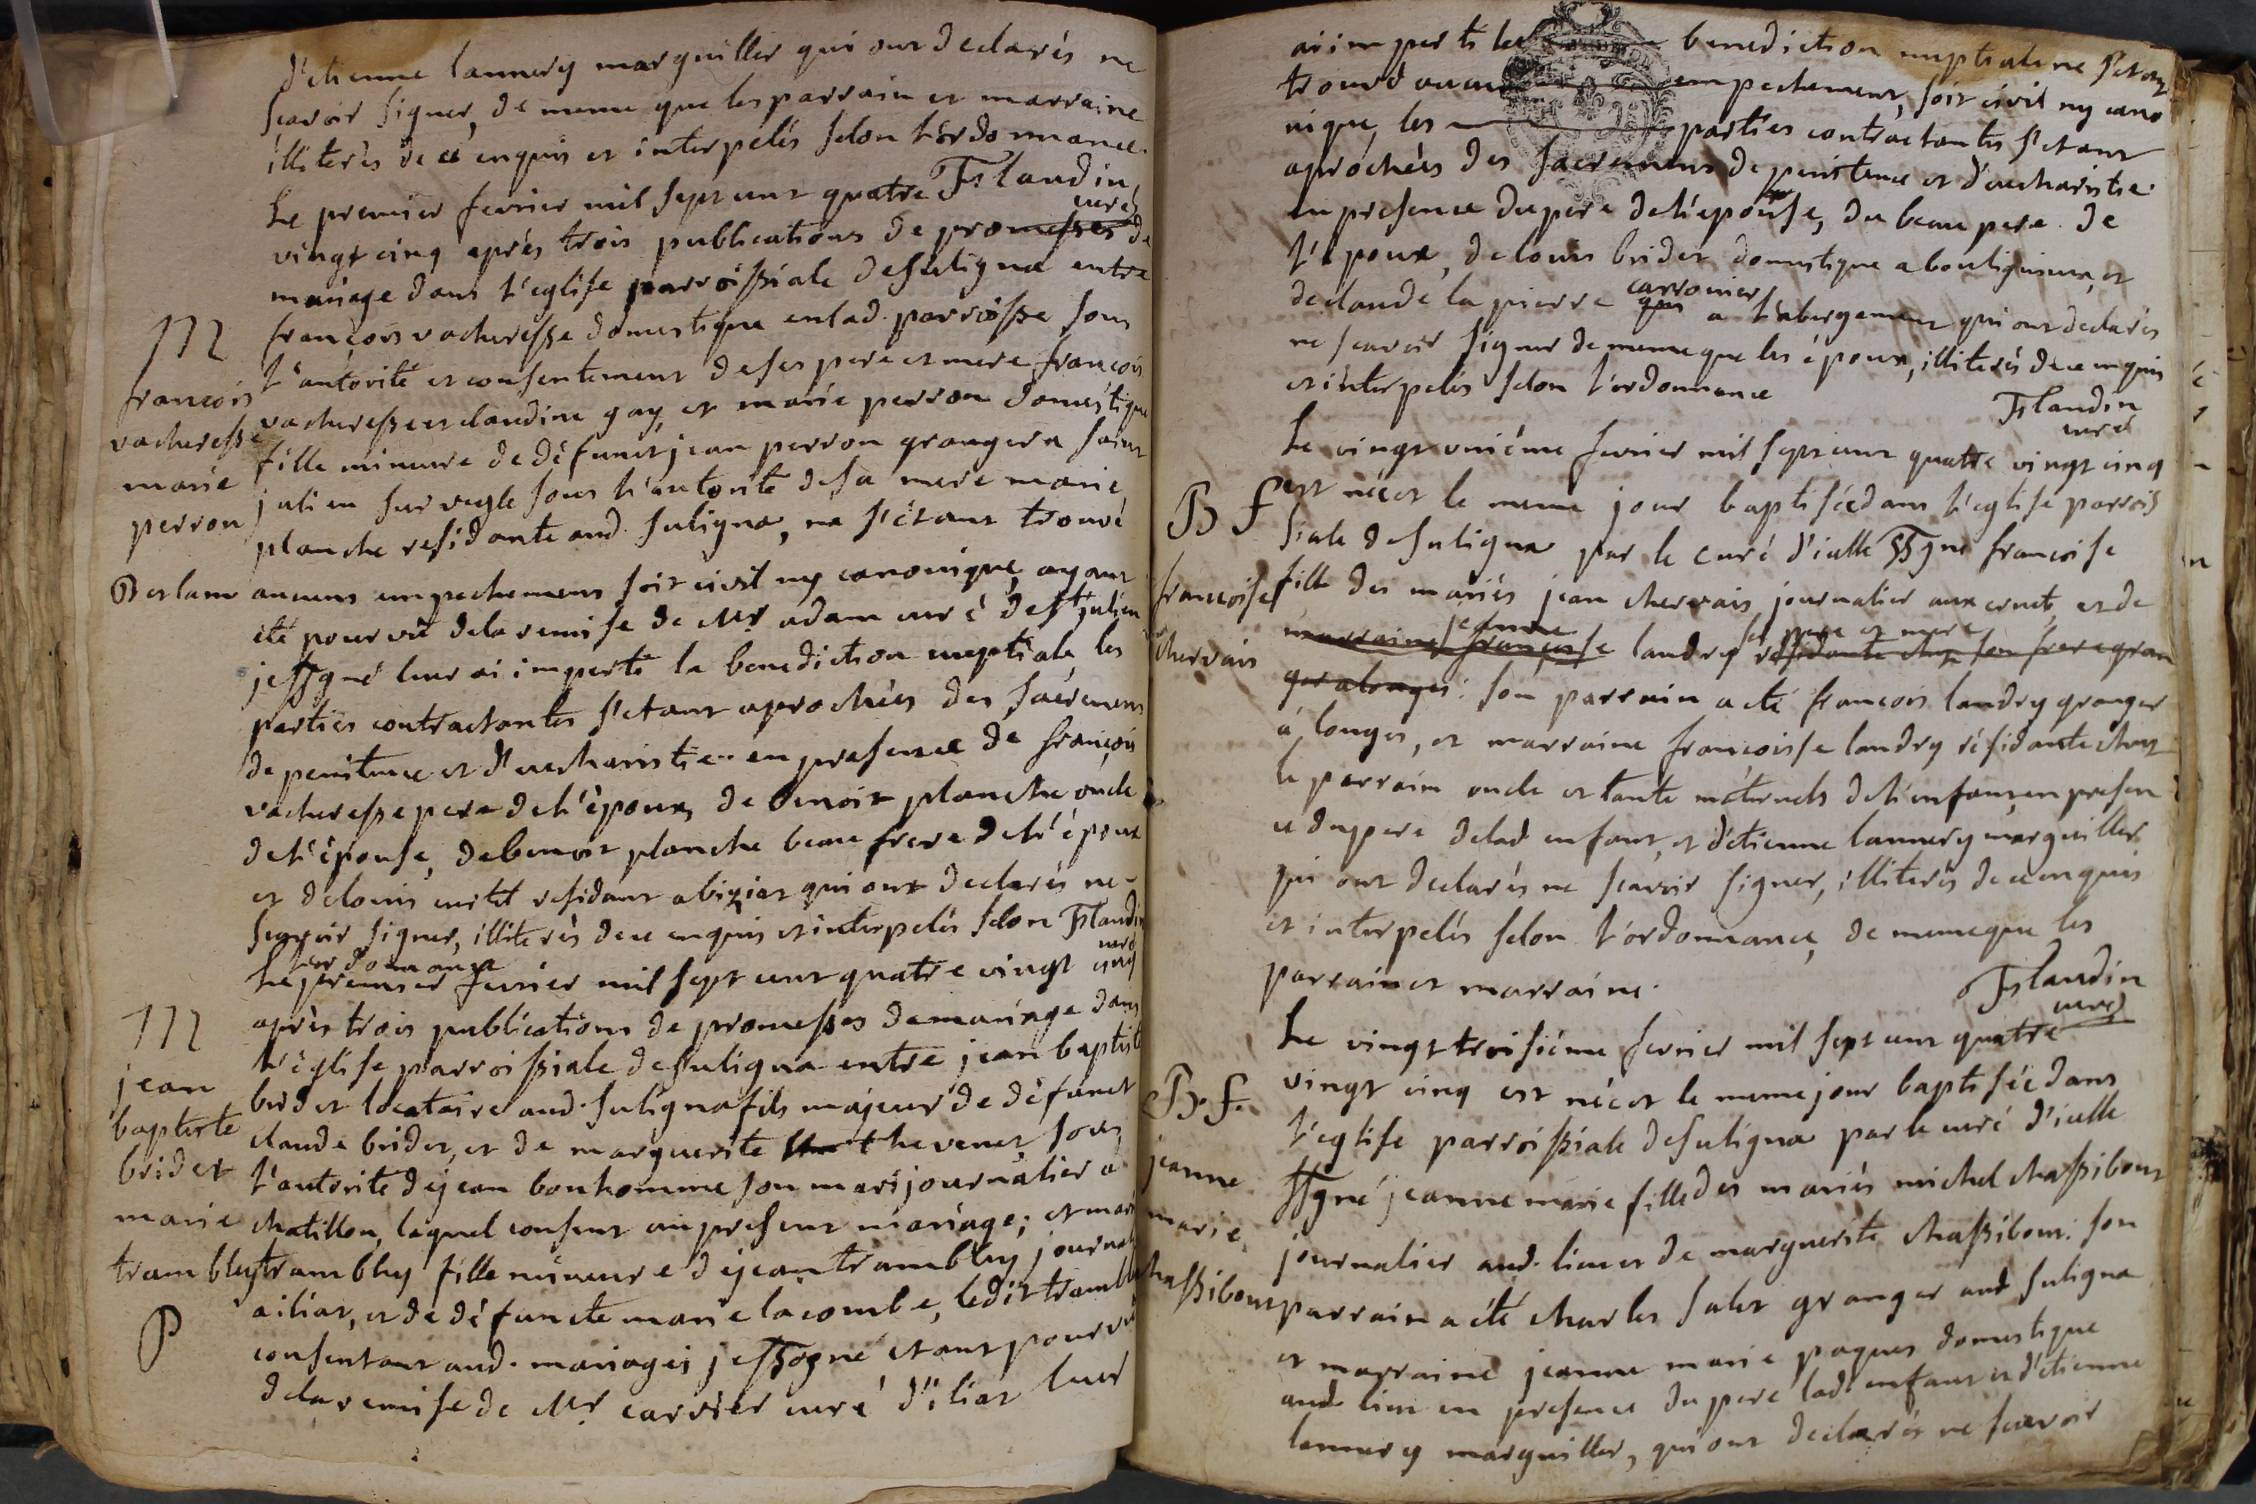 d'etienne lannery marguiller qui ont declarés ne
scavoir signer, de meme que les parrain et marraine
illiterés de ce enquis et interpelés selon l'ordonnance.
Flandin
curé
Le premier fevrier mil sept cent quatre
vingt cinq après trois publications de promesses de
mariage dans l'eglise parroissiale de suligna entre
M
françois
vacheresse
marie
perron
françois vacheresse domestique en lad. parroisse sous
l'autorité et consentement de ses pere et mere françois
vacheresse et claudine gay, et marie perron domestique
fille mineure de défunct jean perron granger a saint
julien sur veyle sous l'autorité de sa mere marie
planche residante aud. suligna, ne s'étant trouvé
aucuns empechemens soit civil ny canonique, ayant
été pourvû de la remise de Mr adam curé de st julien
je ssgné leur ai imperti la benediction nuptiale, les
parties contractantes s'etant aprochées des sacremens
de penitence et d'eucharistie en presence de françois
vacheresse pere de l'époux, de benoit planche oncle
de l'épouse, de benoit planche beau frere de l'époux
et de louis residant a biziat qui ont declarés ne
scavoir signer, illiterés de ce enquis et interpelés selon
l'ordonnance
Flandin
curé
Le premier fevrier mil sept cent quatre vingt cinq
après trois publications de promesses de mariage dans
l'église parroissiale de suligna entre jean baptiste
M
jean
baptiste
bridet
marie
trambley
P
bridet locataire aud. suligna fils majeur de défunct
claude bridet, et de marguerite thevenet sous
l'autorité de jean bonhomme son mari journalier a
chatillon, lequel consent au present mariage; et marie
trambley fille mineure de jean trambley journalier
a iliat, et de défuncte marie lacombe, ledit trambley
consentant aud. mariage; je ssgné etant pourvû
de la remise de Mr carrier curé d'iliat leur
ai imperti la benediction nuptiale ne s'etant
trouvé aucun empechement, soit civil ny cano
nique, les parties contractantes s'etant
aprochées des sacremens de penitence et d'eucharistie
en presence du pere de l'épouse, du beau pere de
l'époux, de louis bridet domestique a bouligneux, et
de claude la pierre carronier a l'abergement qui ont declarés
ne scavoir signer de meme que les époux, illiterés de ce enquis
et interpelés selon l'ordonnance
Flandin
curé
Le vingt unième fevrier mil sept cent quatre vingt cinq
B f
françoise
chervais
est née et le meme jour baptisée dans l'eglise parrois
siale de suligna par le curé d'icelle ssgné françoise
fille des mariés jean chervais journalier aux et de
marraine françoise jeanne landry residante chez son frere gran
ger a longes. son parrain a été françois landry granger
á longes, et marraine françoise landry résidante chez
le parrain oncle et tante maternels de l'enfant, en presen
ce du pere de lad enfant, et d'etienne lannery marguiller
qui ont declarés ne scavoir signer, illiterés de ce enquis
et interpelés selon l'ordonnance, de meme que les
parrain et marraine.
Flandin
curé
Le vingt troisième fevrier mil sept cent quatre
B. f.
jeanne
marie
chassibout
vingt cinq est née et le meme jour baptisée dans
l'eglise parroissiale de suligna par le curé d'icelle
ssgné jeanne marie fille des mariés michel chassibout
journalier aud. lieu et de marguerite chassibout. son
parrain a été charles salet granger aud suligna
et marraine jeanne marie paques domestique
aud. lieu en presence du pere lad. enfant et d'etienne
lannery marguiller, qui ont declarés ne scavoir